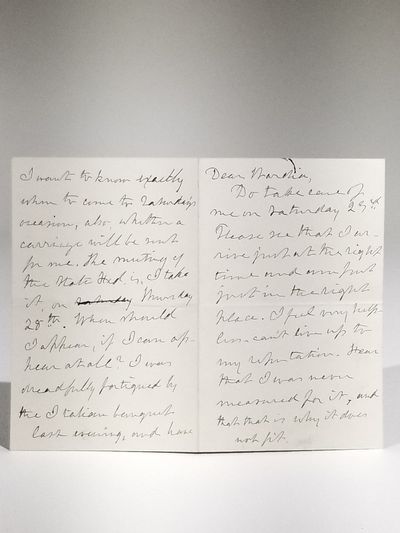 Dear
Do take care of
me on Saturday 23rd
Please see that I ar-
rive just at the right
time and am put
just in the right
place. I feel very help-
less - can't live up to
my reputation. I fear
that I was never
measured for it, and
that that is why it does
not fit.
I want to know exactly
when to come to Saturday's
occasion, also, whether a
carriage will be sent
for me. The meeting of
the State Fed is, I take
it, on Thursday
28th. When should
I appear, if I can ap-
pear at all? I was
dreadfully fatigued by
the Italian banquet
last evening, and have